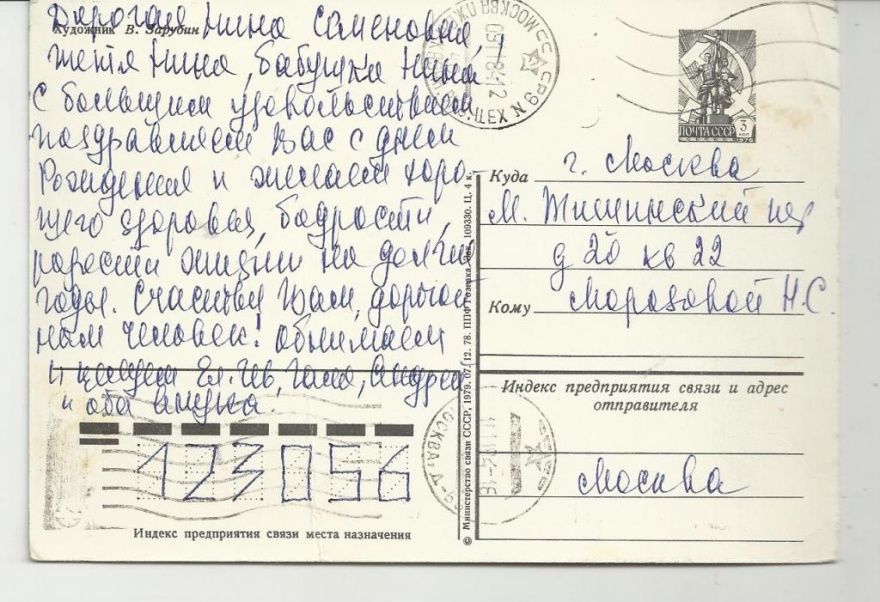 Художник В. Зарубин
Дорогая Нина Семеновна,
тетя Нина, бабушка Нина!
С большим удовольствием
поздравляем Вас с днем
Рождения и желаем хоро-
шего здоровья, бодрости,
радости жизни на долгие
годы. Счастья Вам, дорогой
нам человек! Обнимаем
и целуем Ел. Лев, Галя, Андрей
и оба внука.
123056
Индекс предприятия связи места назначения
© Министерство связи СССР, 1979. 07.12.78. ППФ Гознака. 109330. Ц. 4 к.
ПОЧТА СССР 3 КОП
1976
МОСКВА
Куда г. Москва
М. Тишинский пер
д 20 кв 22
Кому Морозовой Н.С.
Индекс предприятия связи и адрес
отправителя
МОСКВА
Москва